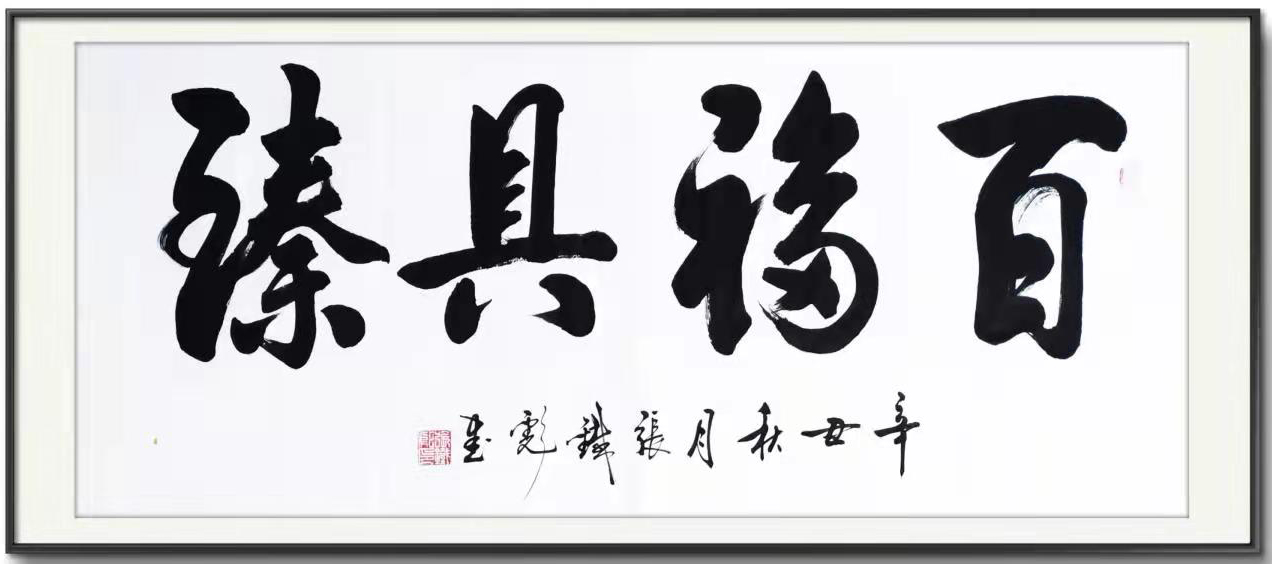 百福具臻
辛丑秋月張鐵彪書